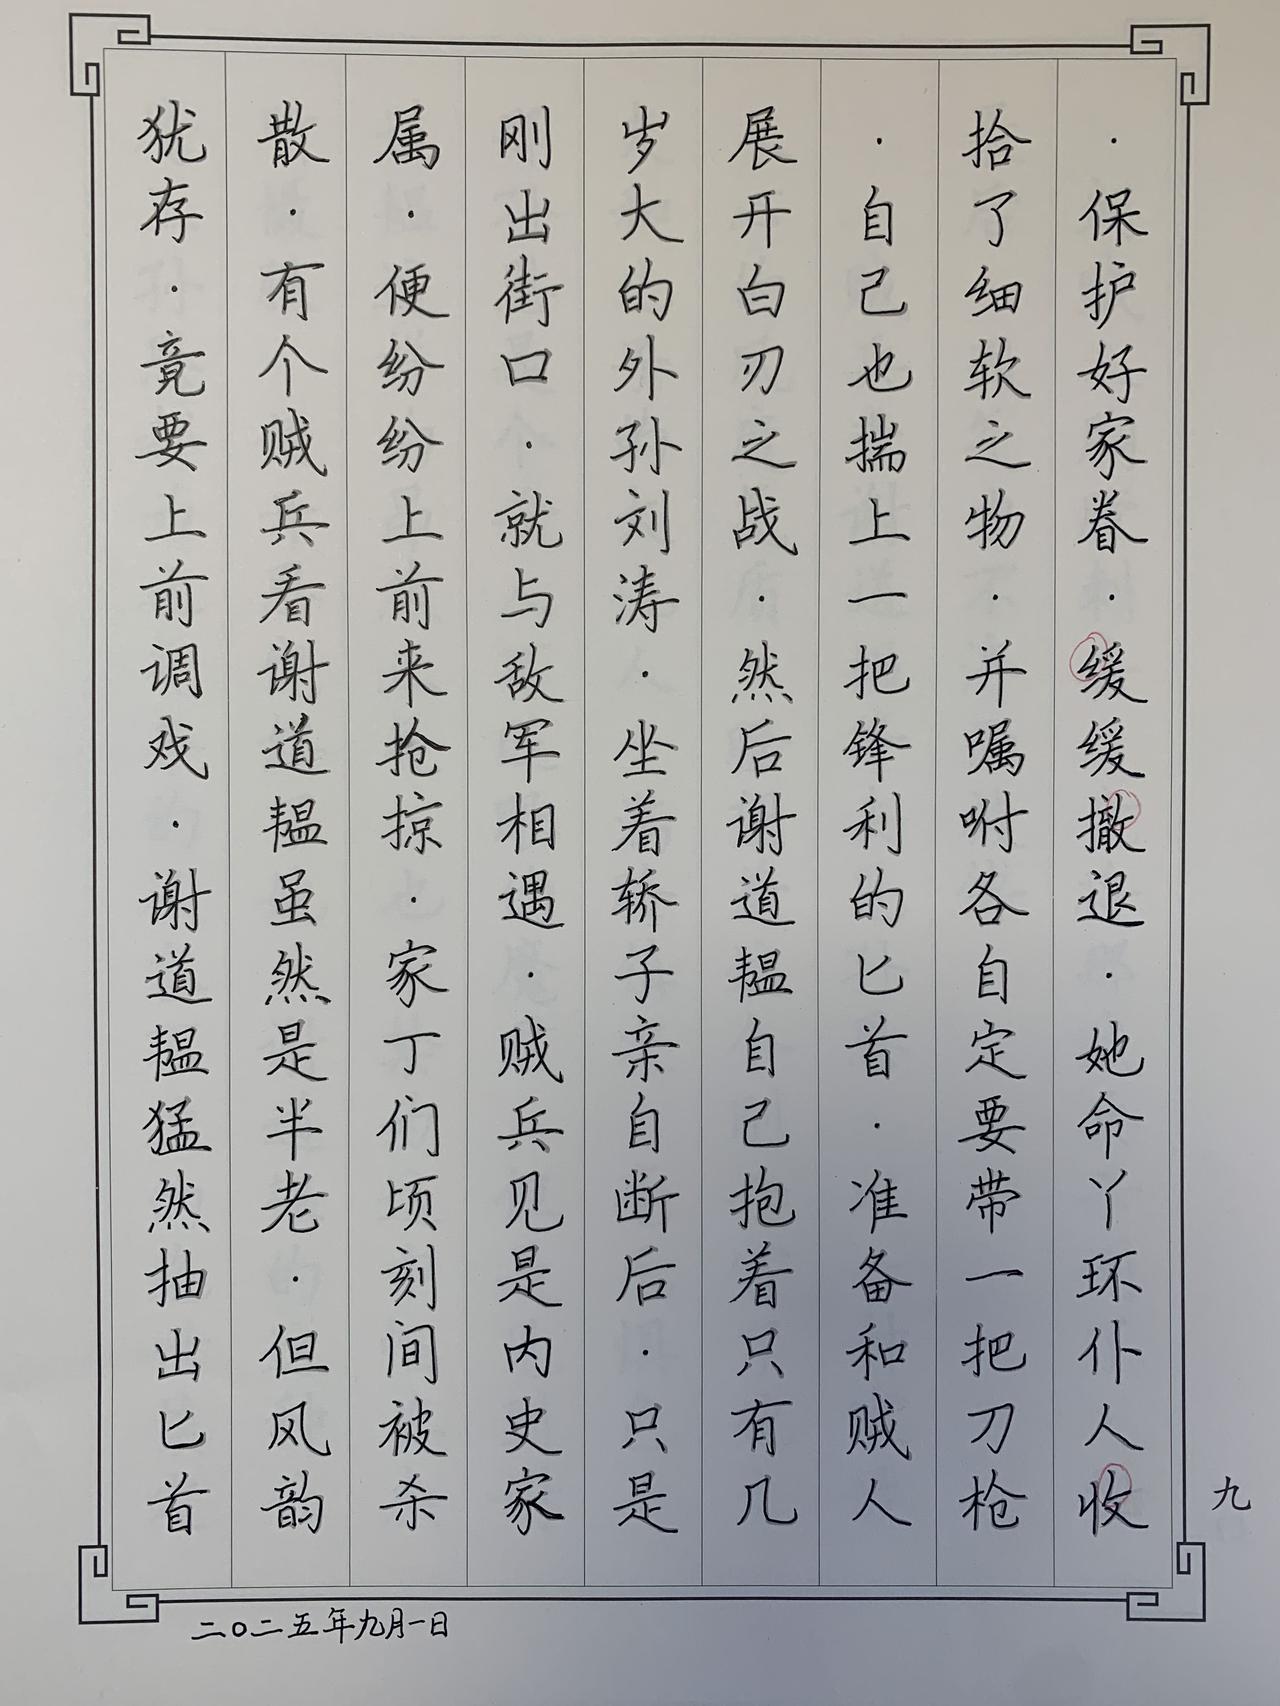 ·保护好家眷·缓缓撤退·她命丫环仆人收
拾了细软之物·并嘱咐各自定要带一把刀枪
·自己也揣上一把锋利的匕首·准备和贼人
展开白刃之战·然后谢道韫自己抱着只有几
岁大的外孙刘涛·坐着轿子亲自断后·只是
刚出街口·就与敌军相遇·贼兵见是内史家
属·便纷纷上前来抢掠·家丁们顷刻间被杀
散·有个贼兵看谢道韫虽然是半老·但风韵
犹存·竟要上前调戏·谢道韫猛然抽出匕首
九
二〇二五年九月一日